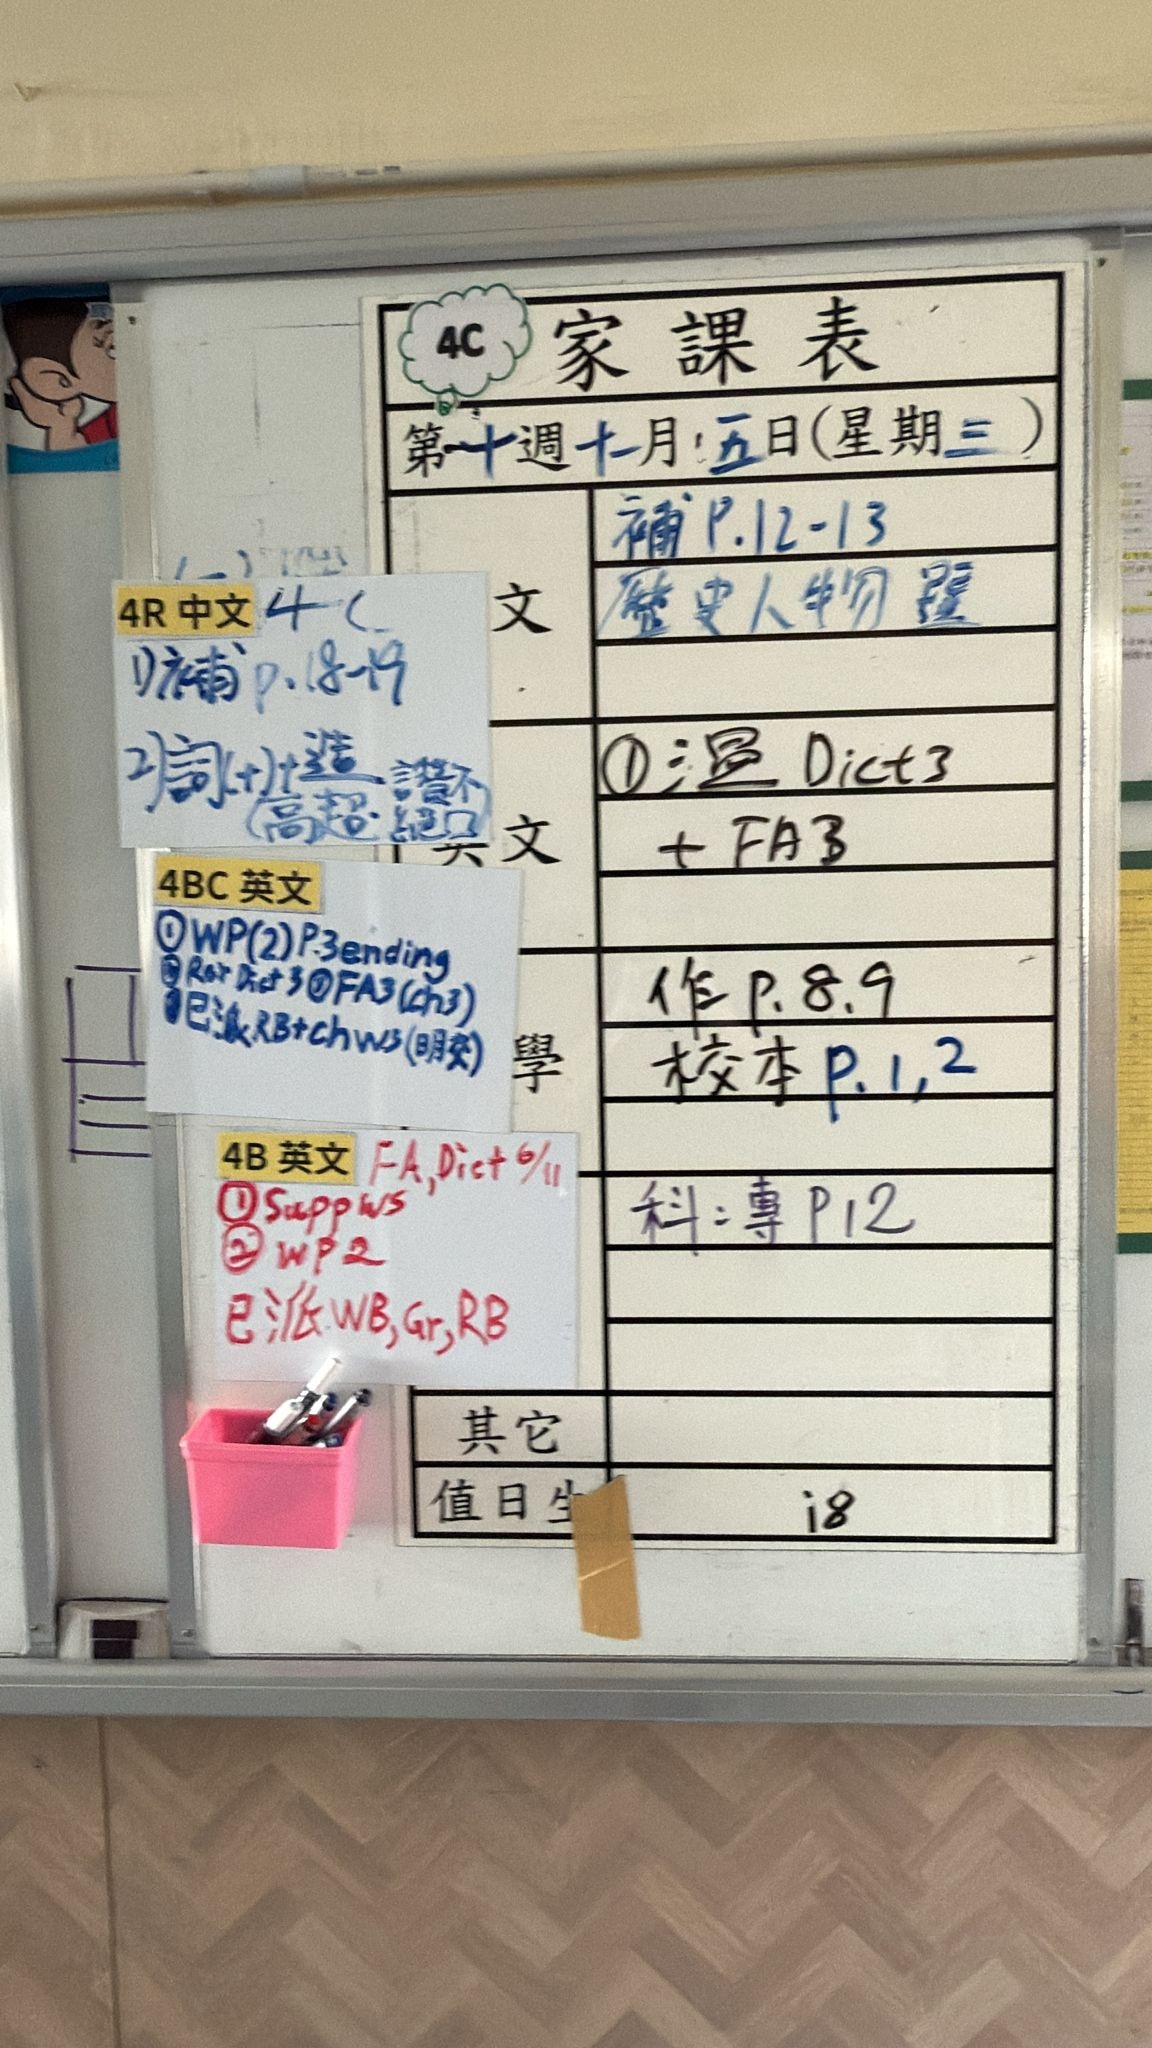 4C 家課表
第十週十一月五日(星期三)
文
補 P.12-13
歷史人物
英文
①溫 Dict 3
+ FA3
學
作 p.8.9
校本 p.1,2
科:專 P12
其它
值日生
18
4R 中文 4C
1)補 p.18-19
2)詞(+)+造
(高超 讚不
絕口)
4BC 英文
①WP(2) P.3 ending
Dict 3 ③FA3(ch3)
已派RB+ch ws(明交)
4B 英文 FA, Dict 6/11
①Supp ws
②WP2
已派 WB, Gr, RB